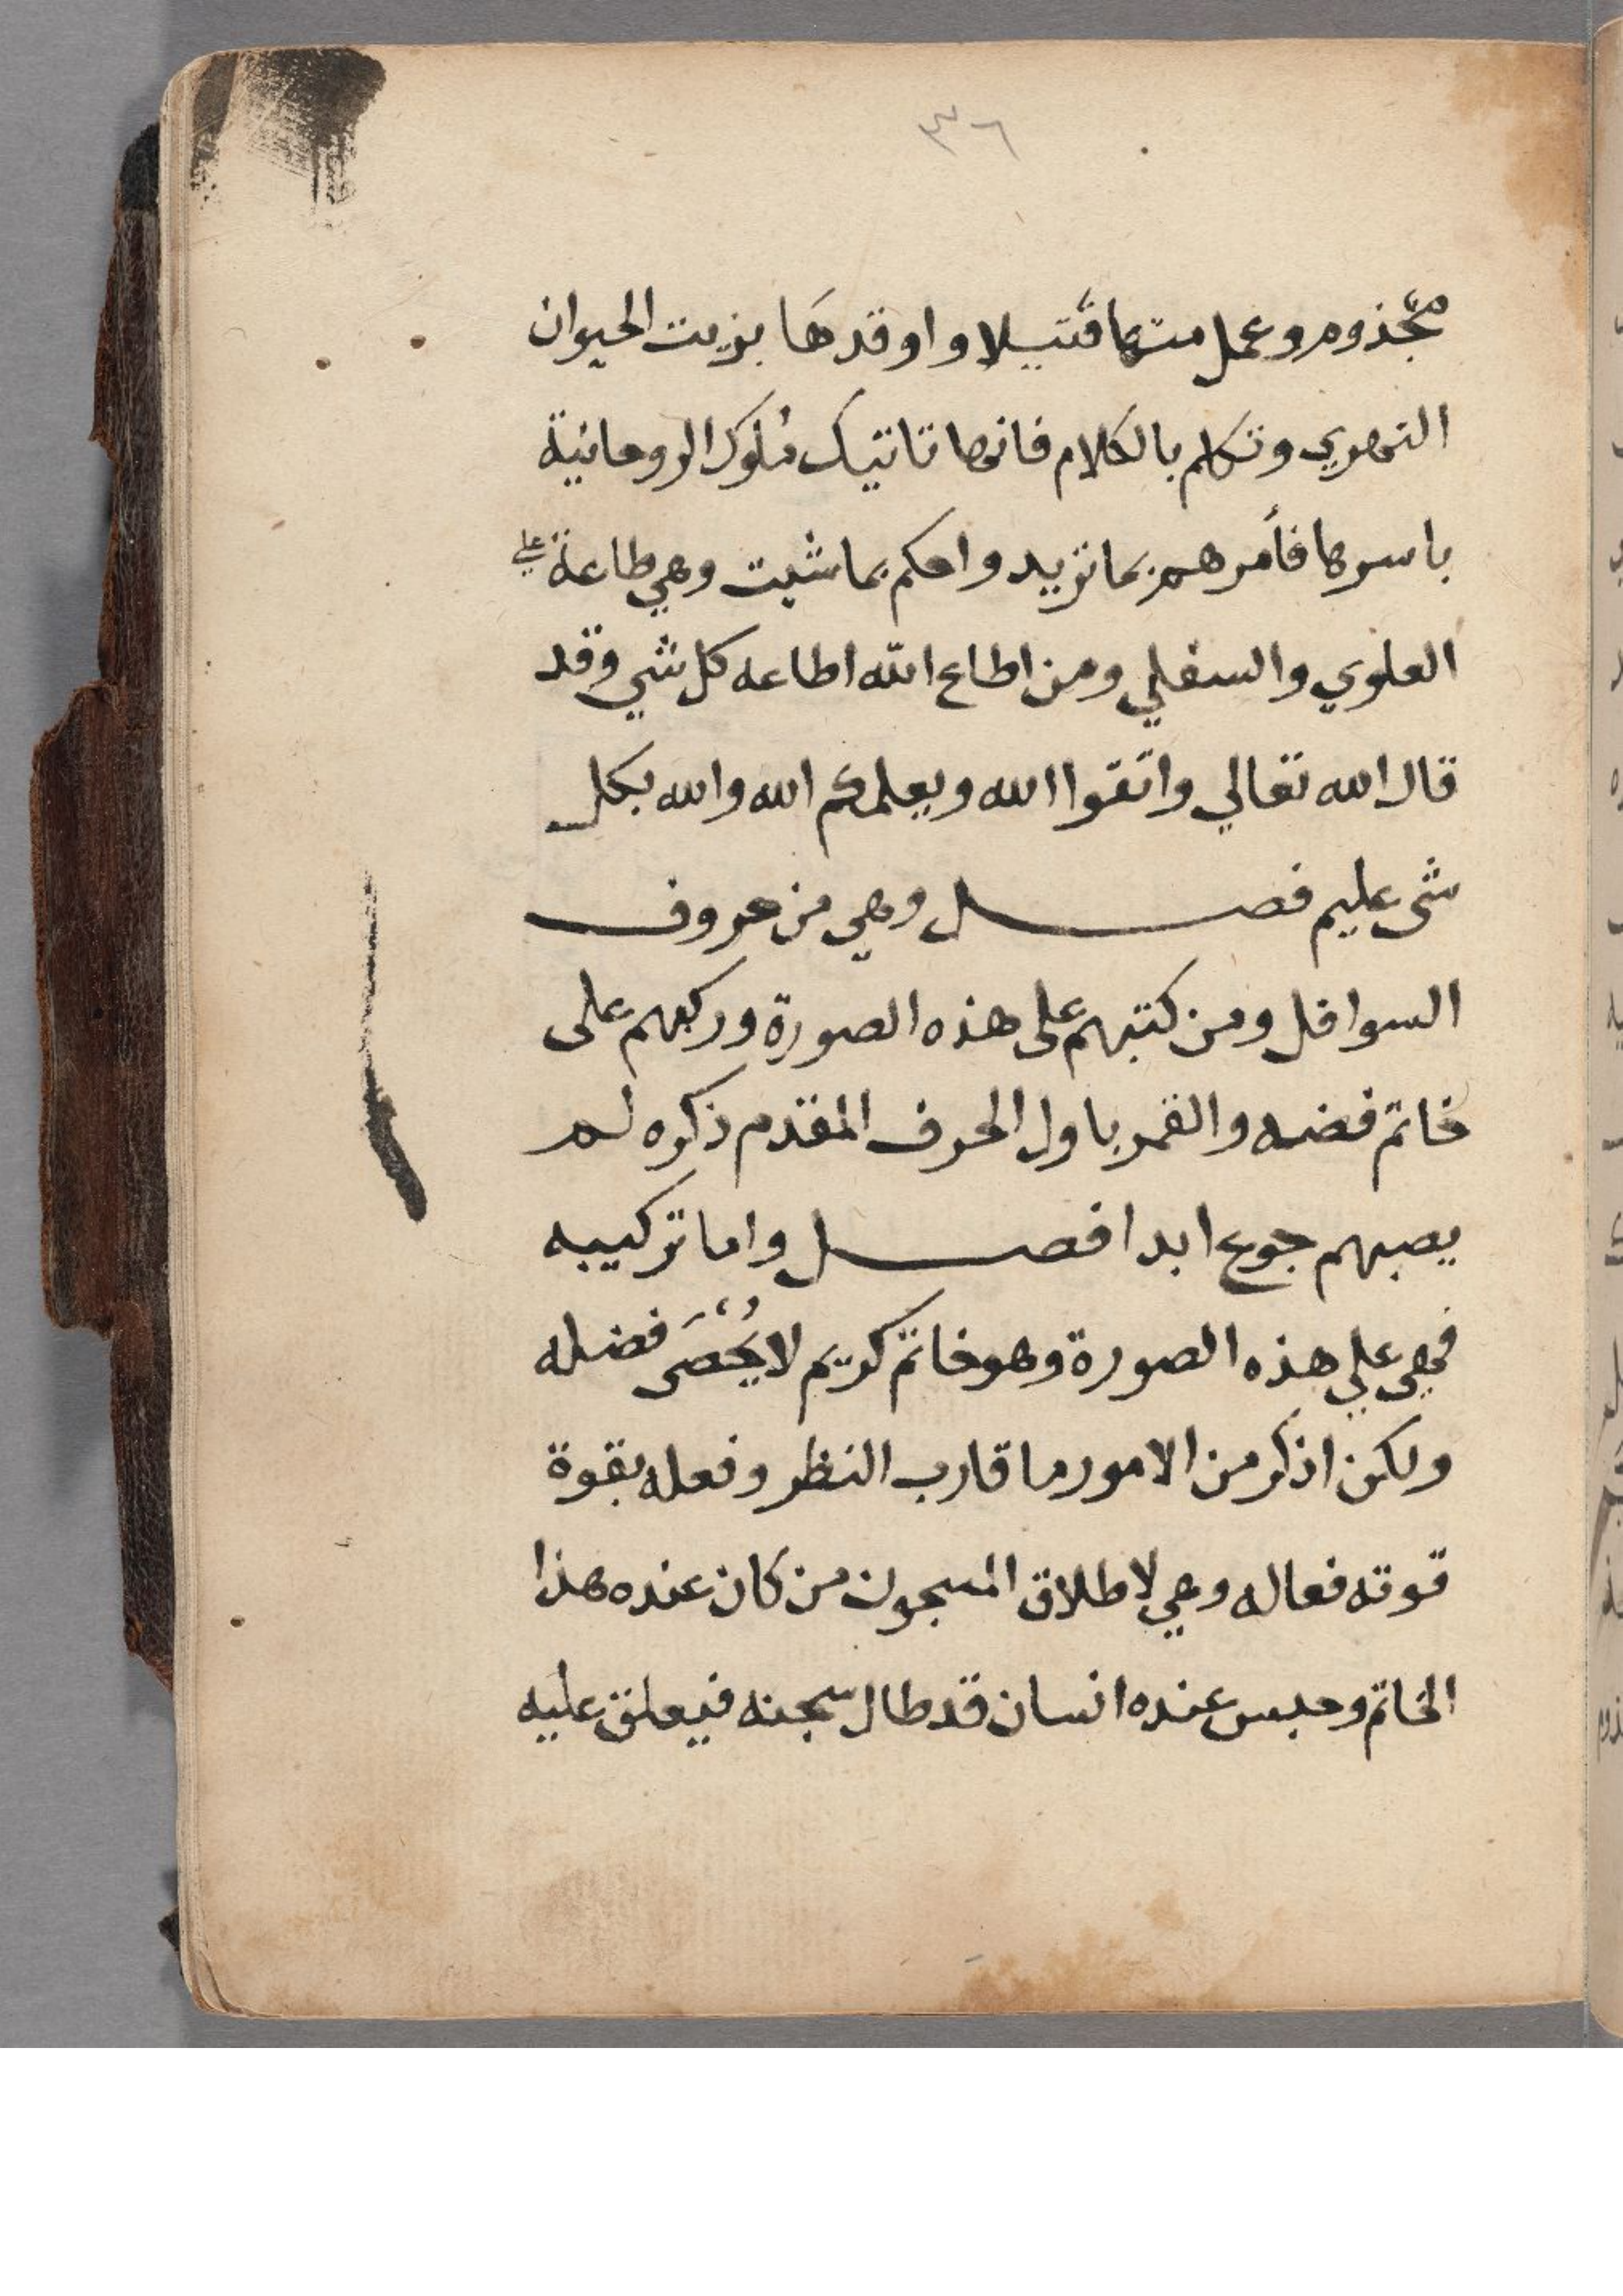 ٣٦
مجذوم وعمل منها فتيلا واوقدها بزيت الحيوان
النهري وتكلم بالكلام فانها تاتيك ملوك الروحانية
باسرها فأمرهم بما تريد واحكم بما شيت وهي طاعة علي
العلوي والسفلي ومن اطاع الله اطاعه كل شي وقد
قال الله تعالي واتقوا الله ويعلمكم الله والله بكل
شى عليم فصل وهي من حروف
السوافل ومن كتبهم على هذه الصورة وركبهم على
خاتم فضه والقمر باول الحرف المقدم ذكره لم
يصبهم جوع ابدا فصل واما تركيبه
فهي علي هذه الصورة وهو خاتم كريم لا يُحْصَى فضله
ولكن اذكر من الامور ما قارب النظر وفعله بقوة
قوته فعاله وهي لاطلاق المسجون من كان عنده هذا
الخاتم وحبس عنده انسان قد طال سجنه فيعلق عليه